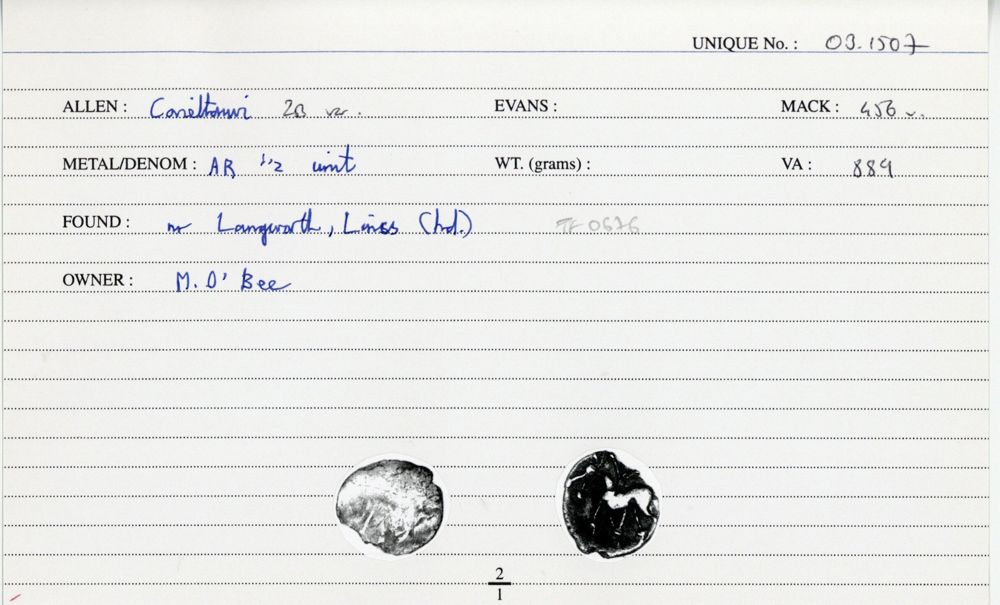 UNIQUE No. : 03.1507
ALLEN : Corieltauvi 2B var. EVANS : MACK : 456 v.
METAL/DENOM : AR 1/2 unit WT. (grams) : VA : 889
FOUND : nr Langworth, Lincs (hd.) TF 0676
OWNER : M. O' Bee
2
1